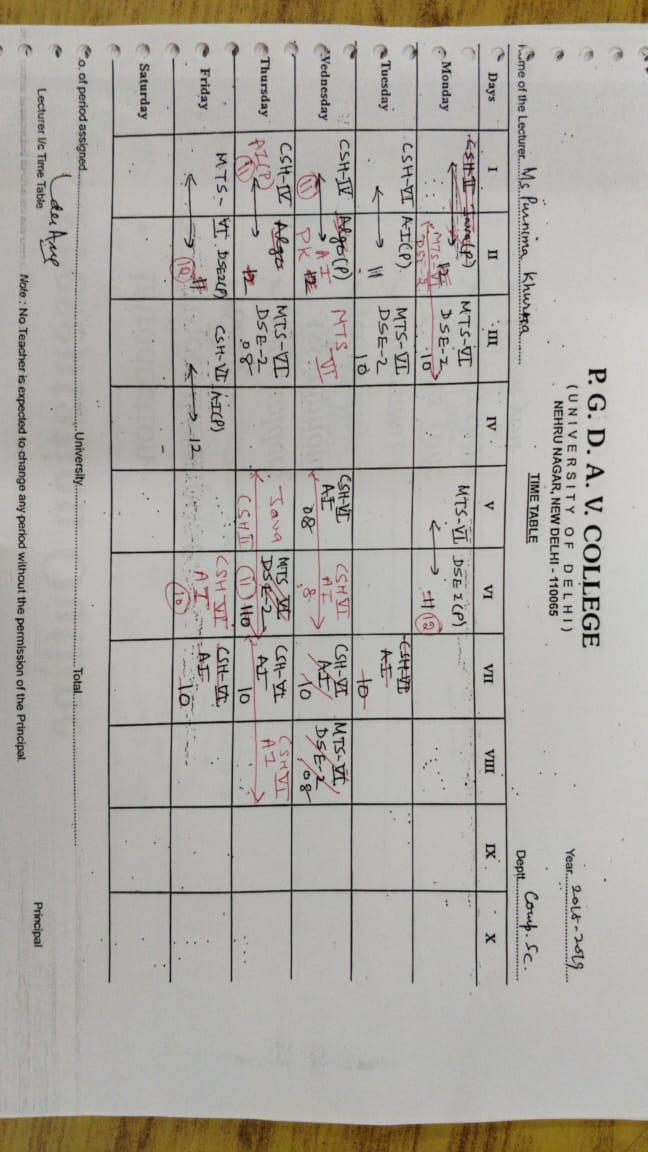 P. G. D. A. V. COLLEGE
(UNIVERSITY OF DELHI)
NEHRU NAGAR, NEW DELHI - 110065
Year 2018-2019
TIME TABLE
me of the Lecturer Ms Purnima Khurana
Deptt. Comp. Sc.
Days I II III IV V VI VII VIII IX X
Monday
CSH-II Java(P) 12
MTS-VI DSE-2
MTS-VI DSE-2 10
MTS-VI DSE2(P) 11 12
Tuesday
CSH-VI AI(P) 11
MTS-VI DSE-2 10
CSH-VI AI 10
Wednesday
CSH-IV Algo(P) 12
11 AI PK
MTS-VI
CSH-VI AI 08
CSH VI AI 8
CSH-VI AI 10
MTS-VI DSE-2 08
Thursday
CSH-IV Algo 12
AI(P) 11
MTS-VI DSE-2 08
Java CSH II
MTS VI DSE-2 11 10
CSH-VI AI 10
CSH VI AI
Friday
MTS-VI DSE2(P) 11 12
CSH-VI AI(P) 12
CSH VI AI 10
CSH-VI AI 10
Saturday
o. of period assigned University Total
Lecturer I/c Time Table
Principal
Note : No Teacher is expected to change any period without the permission of the Principal.